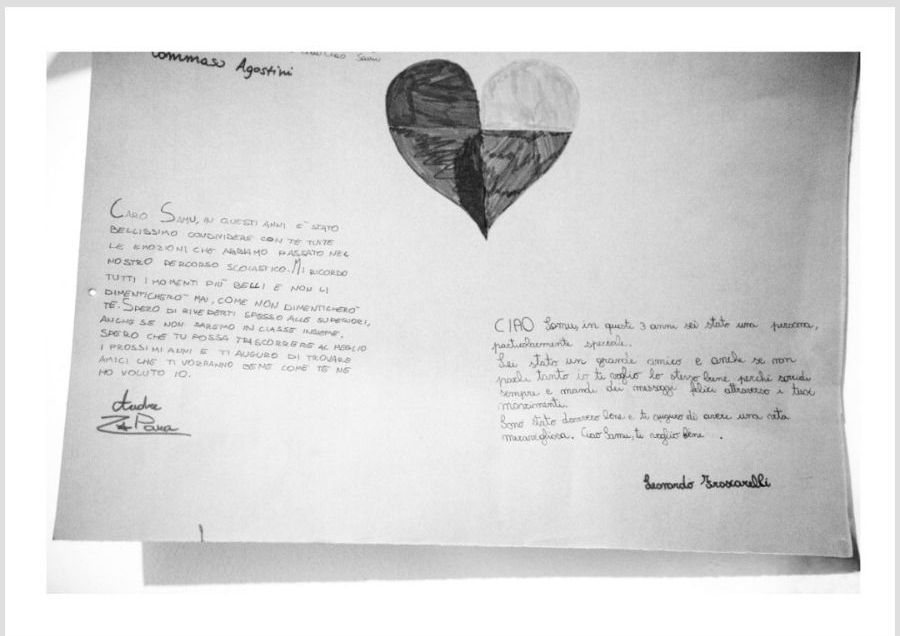 Tommaso Agostini
CARO SAMU, IN QUESTI ANNI E' STATO
BELLISSIMO CONDIVIDERE CON TE TUTTE
LE EMOZIONI CHE ABBIAMO PASSATO NEL
NOSTRO PERCORSO SCOLASTICO. MI RICORDO
TUTTI I MOMENTI PIU' BELLI E NON LI
DIMENTICHERO' MAI, COME NON DIMENTICHERO'
TE. SPERO DI RIVEDERTI SPESSO ALLE SUPERIORI,
ANCHE SE NON SAREMO IN CLASSE INSIEME,
SPERO CHE TU POSSA TRASCORRERE AL MEGLIO
I PROSSIMI ANNI E TI AUGURO DI TROVARE
AMICI CHE TI VORRANNO BENE COME TE NE
HO VOLUTO IO.
CIAO Samu, in questi 3 anni sei stato una persona,
particolarmente speciale.
Sei stato un grande amico e anche se non
parli tanto io ti voglio lo stesso bene perché sorridi
sempre e mandi dei messaggi felici attraverso i tuoi
movimenti.
Sono stato davvero bene e ti auguro di avere una vita
meravigliosa. Ciao Samu, ti voglio bene.
Leonardo